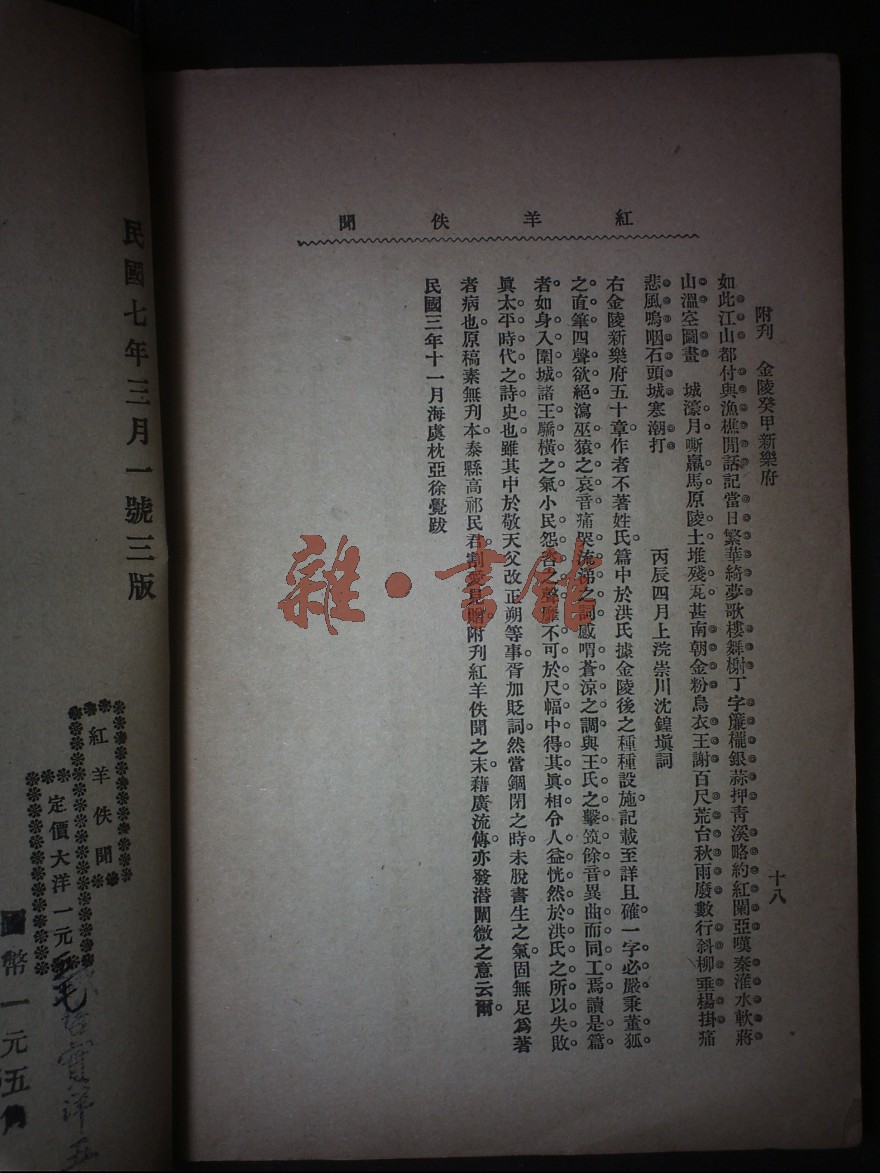 紅羊佚聞
附刋　金陵癸甲新樂府
十八
如此江山都付與漁樵閒話記當日繁華綺夢歌樓舞榭丁字簾櫳銀蒜押靑溪略約紅闌亞嘆秦淮水軟蔣
山溫空圖畫　城濠月嘶羸馬原陵土堆殘瓦甚南朝金粉烏衣王謝百尺荒台秋雨廢數行斜柳垂楊掛痛
悲風嗚咽石頭城寒潮打
丙辰四月上浣崇川沈鍠塡詞
右金陵新樂府五十章作者不著姓氏篇中於洪氏據金陵後之種種設施。記載至詳且確。一字必嚴秉董狐
之直筆四聲欲絕瀉巫猿之哀音痛哭流涕之詞感喟蒼涼之調與王氏之擊筑餘音異曲而同工焉讀是篇
者如身入圍城諸王驕橫之氣小民怨咨之聲雁不可於尺幅中得其眞相令人益恍然於洪氏之所以失敗
眞太平時代之詩史也雖其中於敬天父改正朔等事。胥加貶詞。然當錮閉之時。未脫書生之氣。固無足爲著
者病也。原稿素無刋本。泰縣高祁民君。割愛見贈。附刋紅羊佚聞之末。藉廣流傳。亦發潛闡微之意云爾。
民國三年十一月海虞枕亞徐覺跋
民國七年三月一號三版
紅羊佚聞
定價大洋一元
國幣一元五角
雜·書館